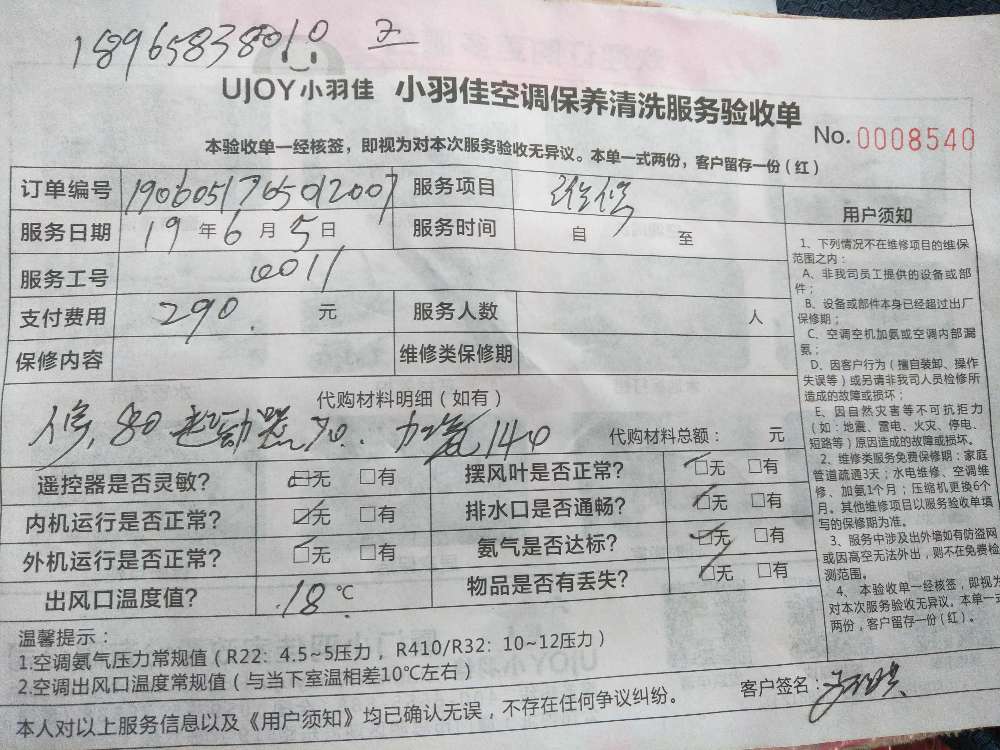 18965838010 王
UJOY小羽佳 小羽佳空调保养清洗服务验收单
No. 0008540
本验收单一经核签，即视为对本次服务验收无异议。本单一式两份，客户留存一份（红）
订单编号 服务项目 维修
服务日期 19 年 6 月 5 日 服务时间 自 至
服务工号 0011
支付费用 290. 元 服务人数 人
保修内容 维修类保修期
代购材料明细（如有）
修, 80 起动器70. 加氨140 代购材料总额： 元
遥控器是否灵敏? ☑无 □有 摆风叶是否正常? ☑无 □有
内机运行是否正常? ☑无 □有 排水口是否通畅? ☑无 □有
外机运行是否正常? ☑无 □有 氨气是否达标? ☑无 □有
出风口温度值? 18 ℃ 物品是否有丢失? ☑无 □有
用户须知
1、下列情况不在维修项目的维保
范围之内：
A、非我司员工提供的设备或部
件；
B、设备或部件本身已经超过出厂
保修期；
C、空调空机加氨或空调内部漏
氨；
D、因客户行为（擅自装卸、操作
失误等）或另请非我司人员检修所
造成的故障或损坏；
E、因自然灾害等不可抗拒力
（如：地震、雷电、火灾、停电、
短路等）原因造成的故障或损坏。
2、维修类服务免费保修期：家庭
管道疏通3天；水电维修、空调维
修、加氨1个月；压缩机更换6个
月。其他维修项目以服务验收单填
写的保修期为准。
3、服务中涉及出外墙如有防盗网
或因高空无法外出，则不在免费检
测范围。
4、本验收单一经核签，即视为
对本次服务验收无异议。本单一式
两份，客户留存一份（红）。
温馨提示：
1.空调氨气压力常规值（R22：4.5~5压力，R410/R32：10~12压力）
2.空调出风口温度常规值（与当下室温相差10℃左右）
客户签名：
本人对以上服务信息以及《用户须知》均已确认无误，不存在任何争议纠纷。